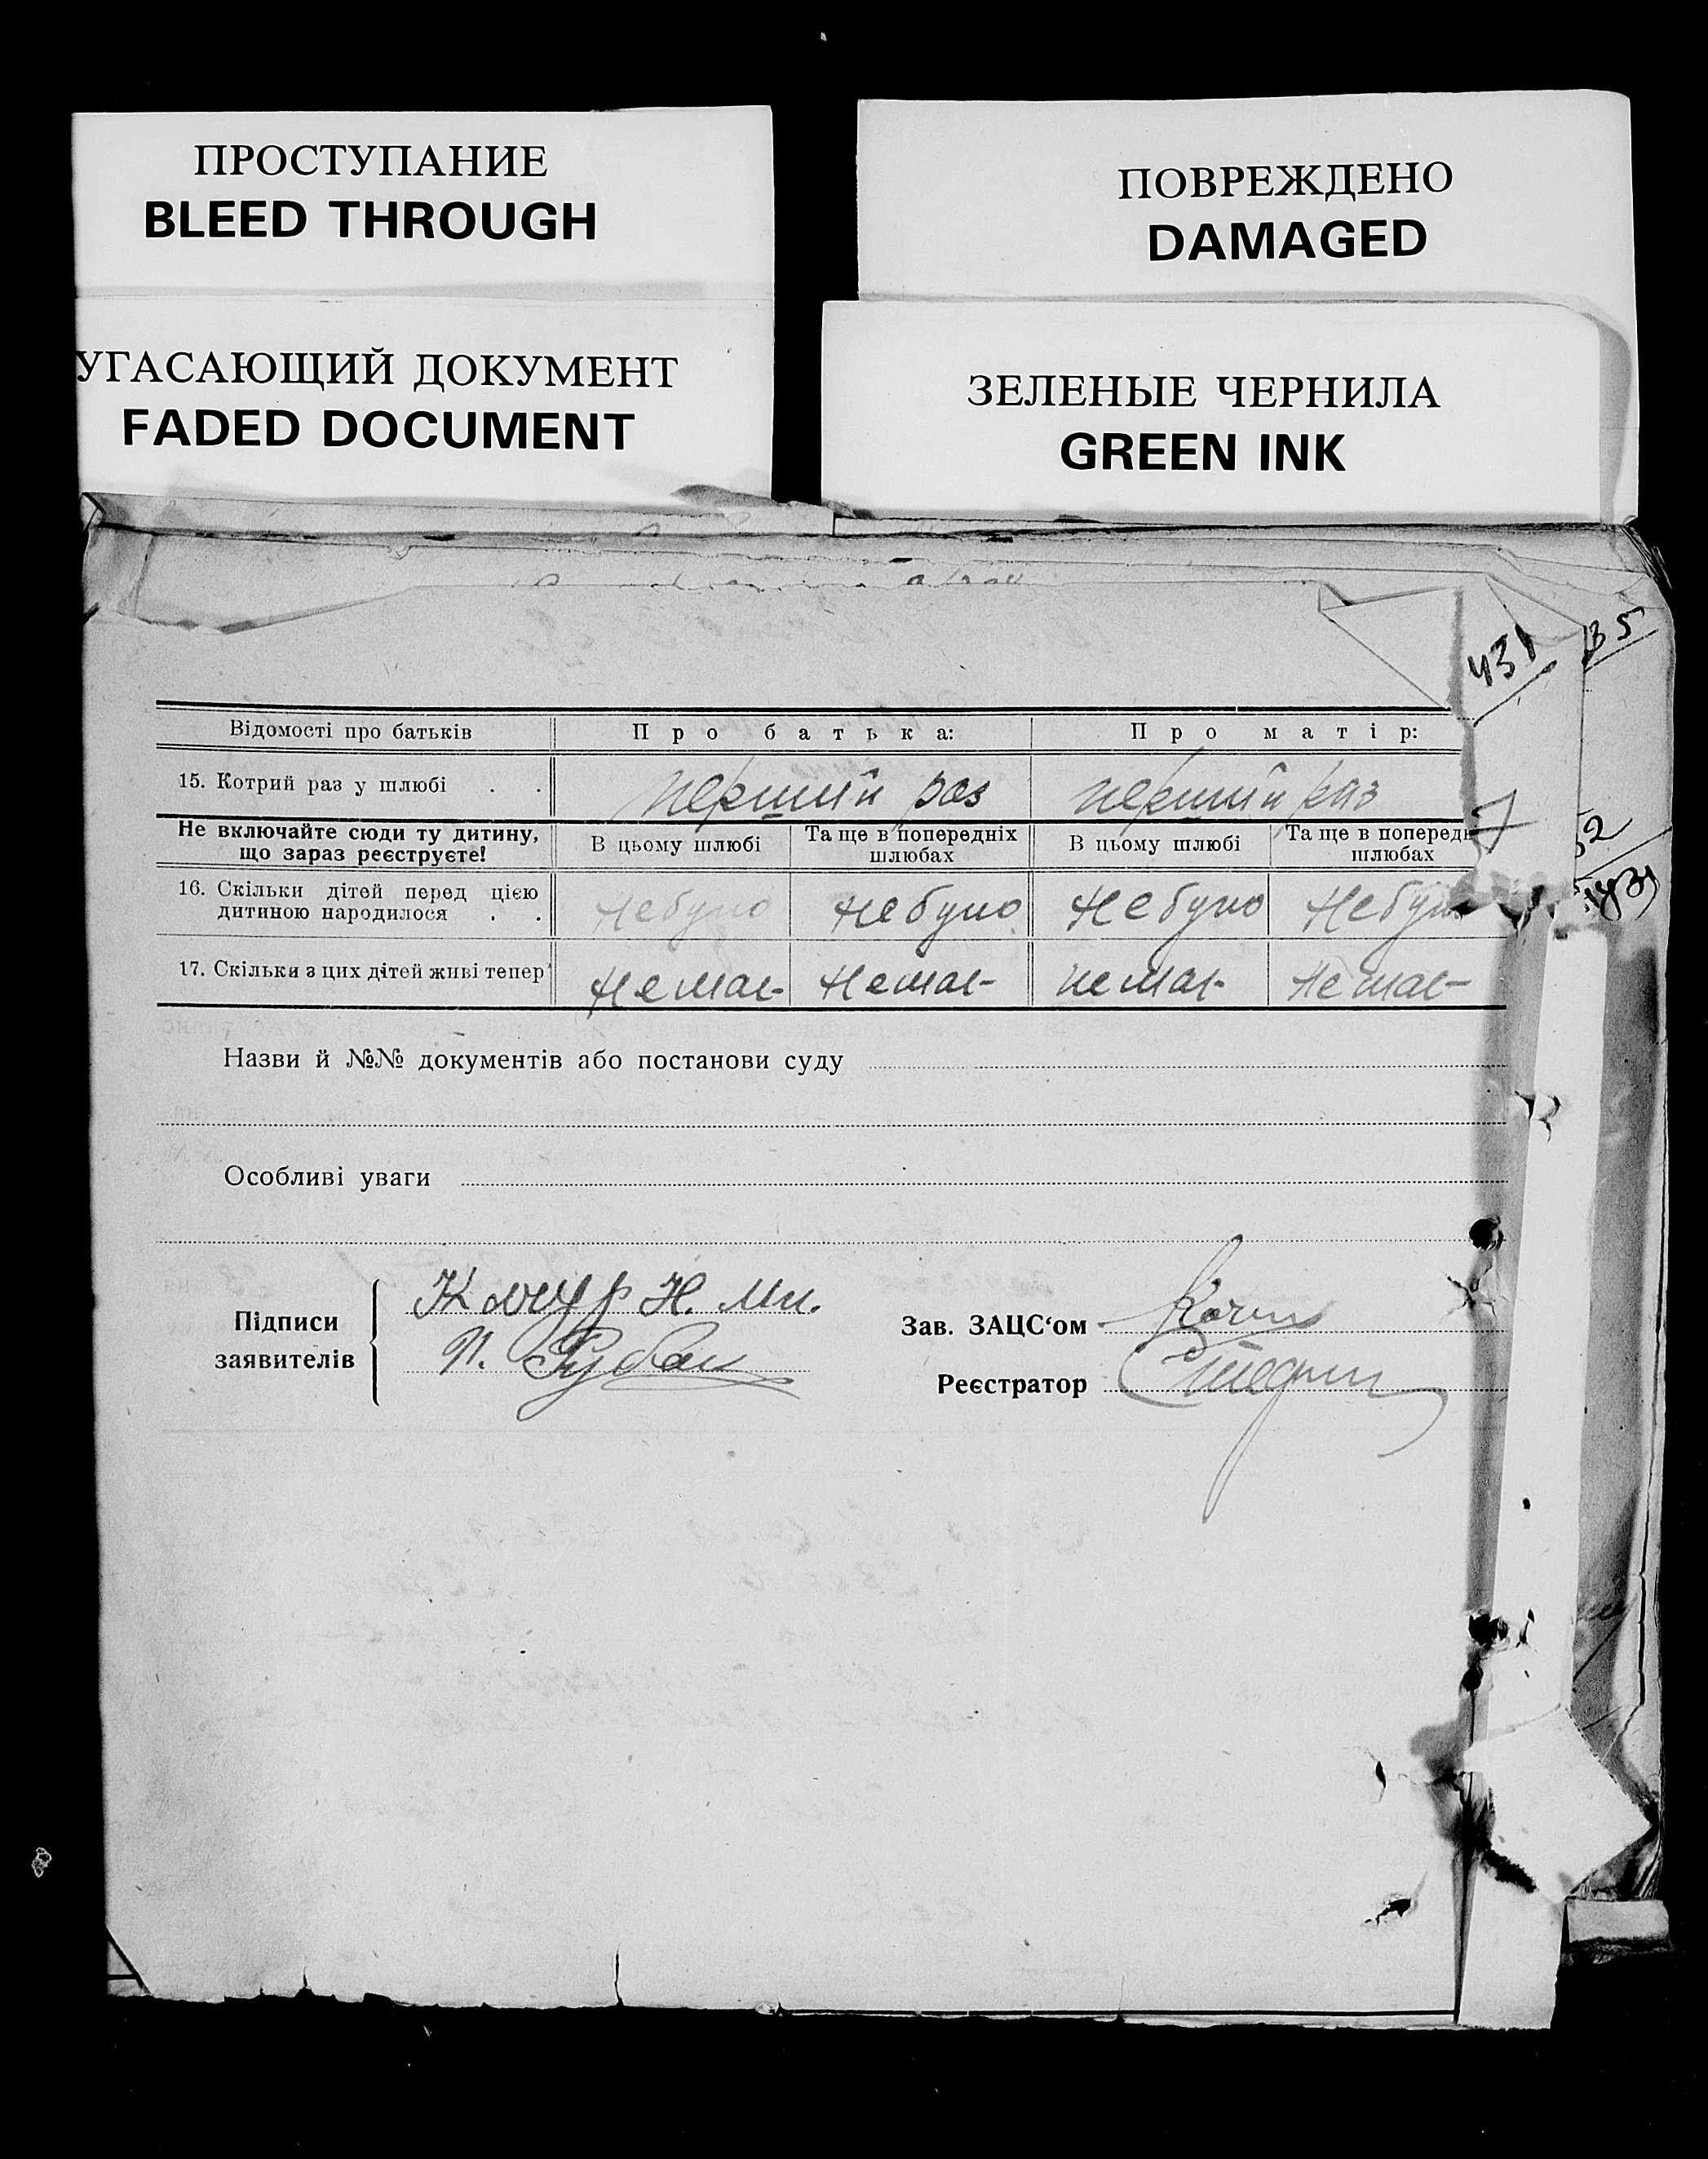 ПРОСТУПАНИЕ
BLEED THROUGH
ПОВРЕЖДЕНО
DAMAGED
УГАСАЮЩИЙ ДОКУМЕНТ
FADED DOCUMENT
ЗЕЛЕНЫЕ ЧЕРНИЛА
GREEN INK
35
431
Відомості про батьків Про батька: Про матір:
15. Котрий раз у шлюбі . . перший раз перший раз
Не включайте сюди ту дитину, що зараз реєструєте! В цьому шлюбі Та ще в попередніх шлюбах В цьому шлюбі Та ще в поперед шлюбах
16. Скільки дітей перед цією дитиною народилося . . Небуло Небуло Небуло Небул
17. Скільки з цих дітей живі тепер Немає Немає Немає Немає
Назви й №№ документів або постанови суду
Особливі уваги
Підписи заявителів
Н. Ми.
П. Рубан
Зав. ЗАЦС‘ом
Реєстратор